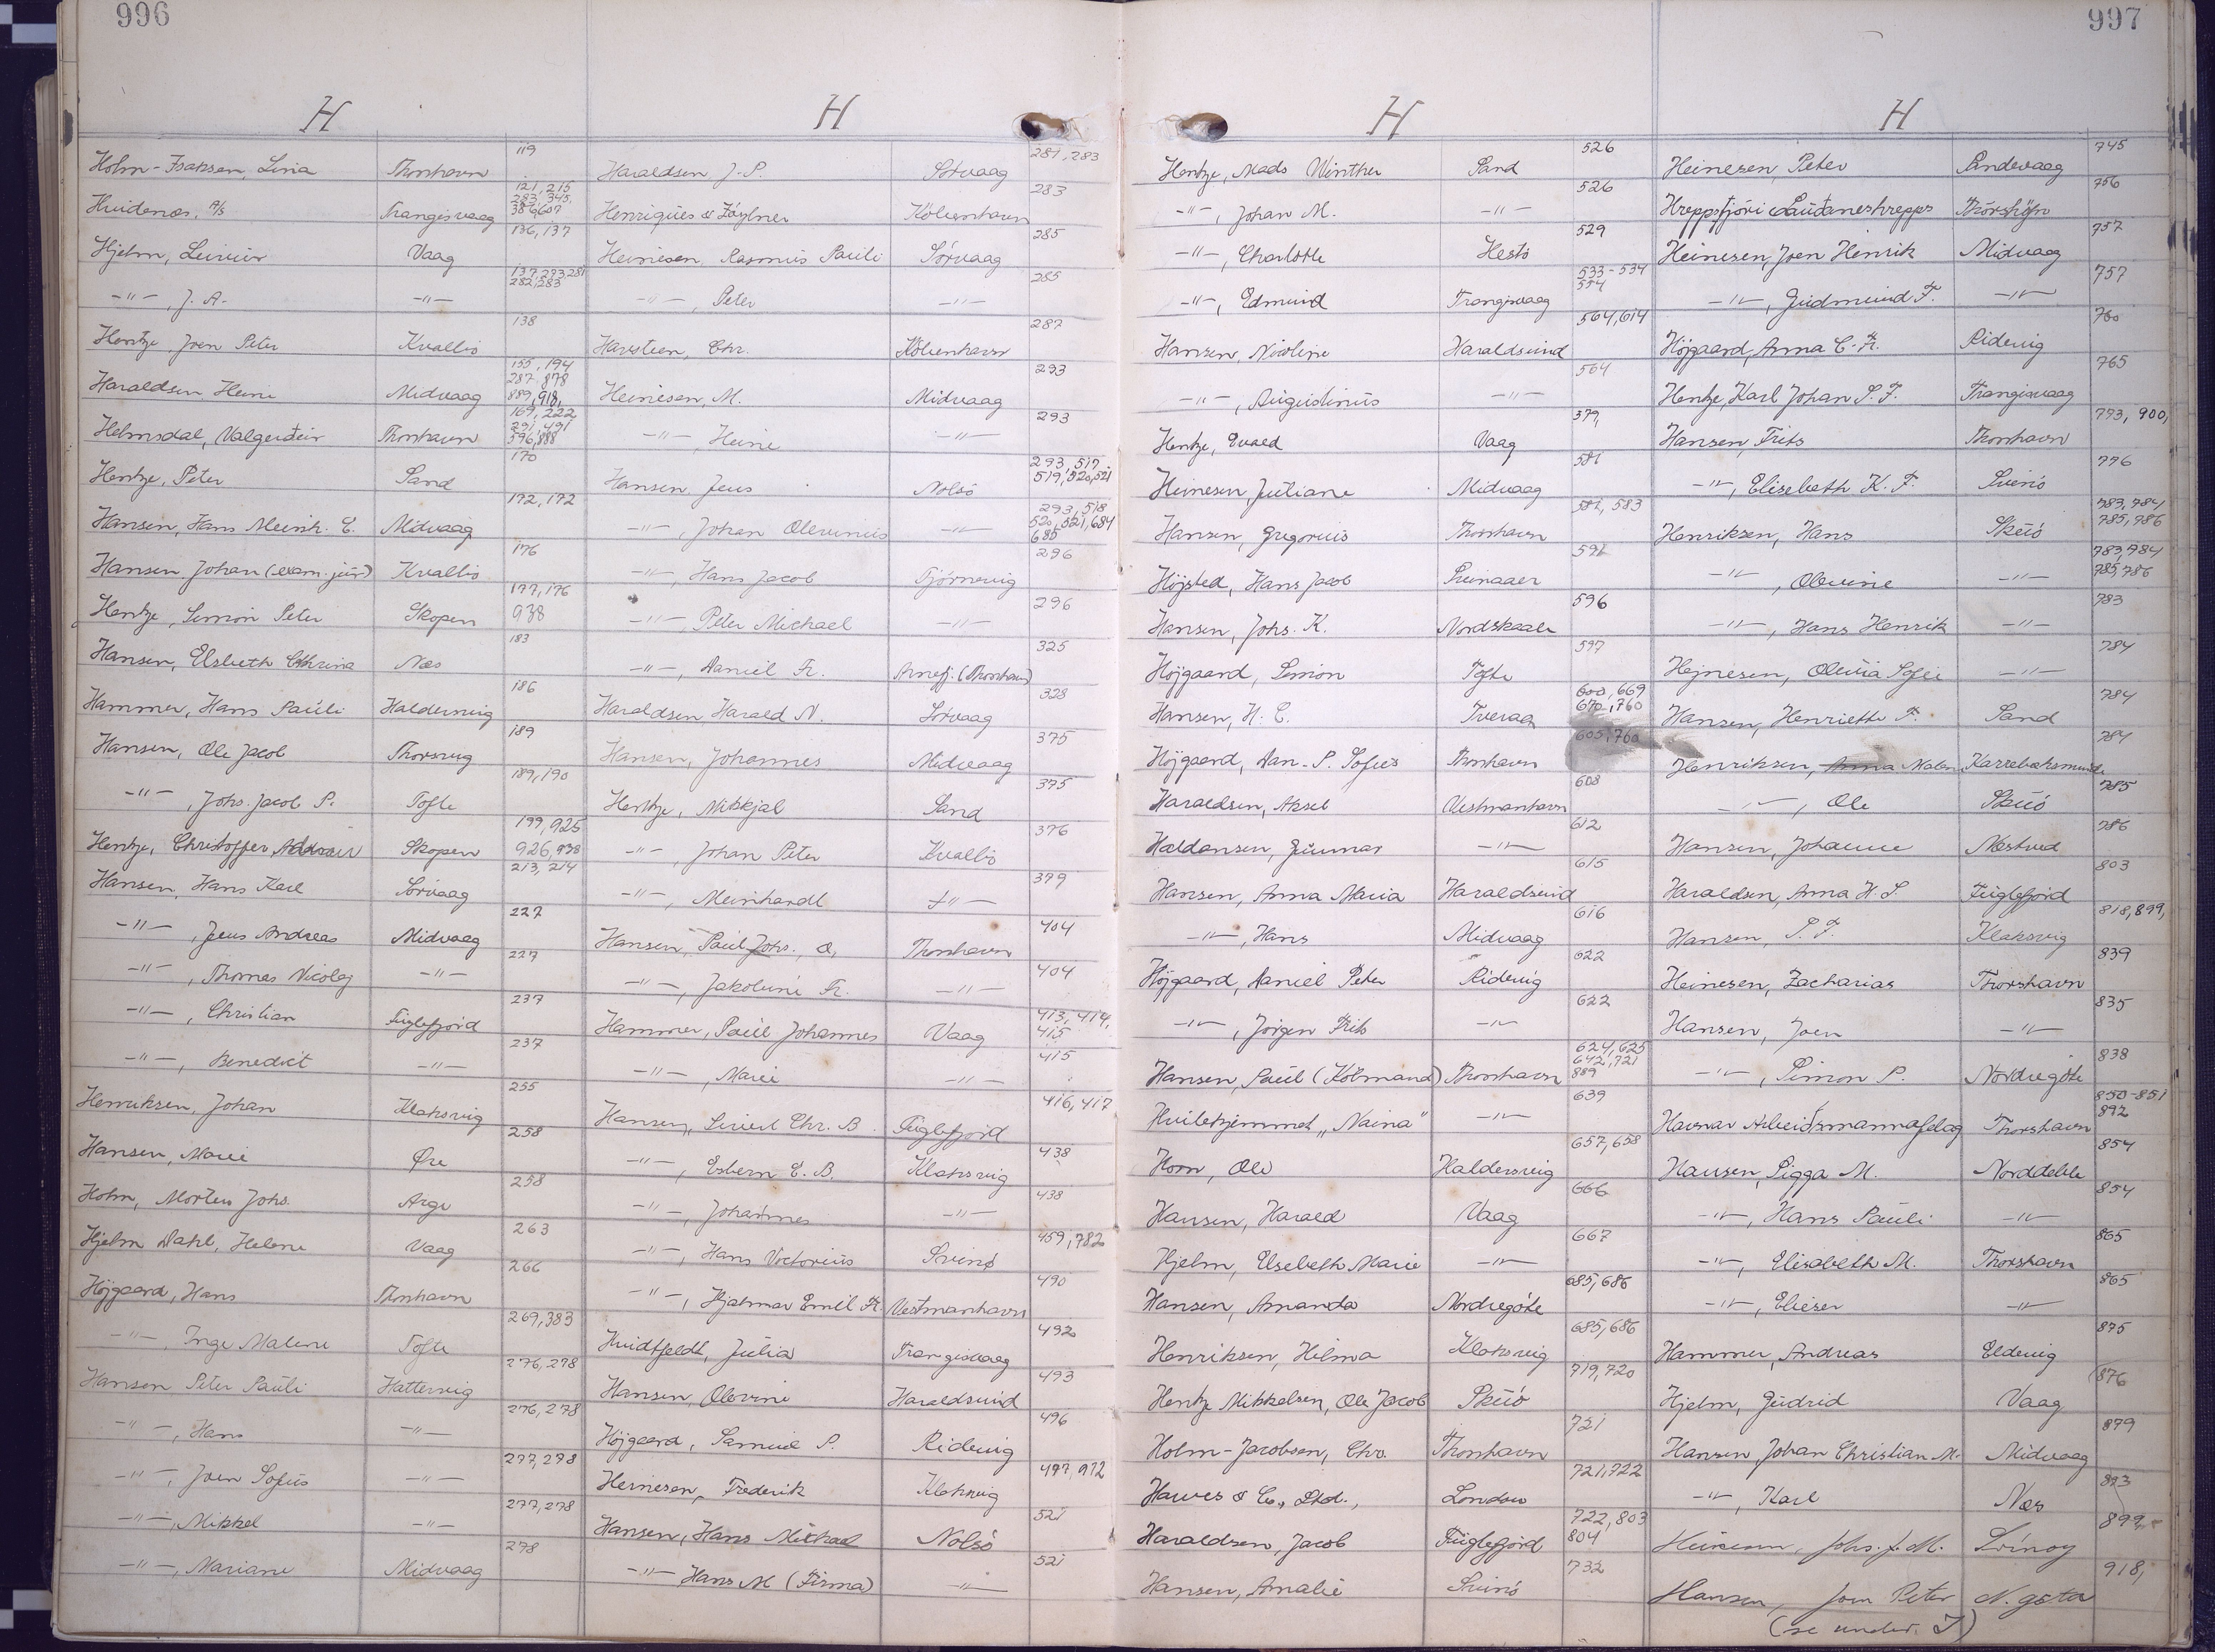 996
H
Holm-Isaksen, Lina Thorshavn 119
Hvidenæs, A/S Trangisvaag 121, 215, 283, 345, 386, 607
Hjelm, Vaag 136, 137
-"-, J. A. -"- 137, 273, 281 282, 283
Hentze, Joen Peter Kvalbø 138
Haraldsen, Heini Midvaag 155, 194 287, 878 889, 918,
Helmsdal, Valgerdur Thorshavn 169, 222 291, 491 596, 888
Hentze, Peter Sand 170
Hansen, Hans Meinh. E. Midvaag 172, 172
Hansen, Johan (exam. jur) Kvalbø 176
Hentze, Simon Peter Skopen 177, 176 938
Hansen, Elsbeth Cathrina Næs 183
Hammer, Hans Pauli Haldervig 186
Hansen, Ole Jacob Thorsvig 189
-"-, Johs. Jacob P. Tofte 189, 190
Hentze, Christoffer Skopen 199, 925 926, 938
Hansen, Hans Karl Sørvaag 213, 214
-"-, Jens Andreas Midvaag 227
-"-, Thomas Nicolaj -"- 227
-"-, Christian Fuglefjord 237
-"-, Benedict -"- 237
Henriksen, Johan Klaksvig 255
Hansen, Marie Øre 258
Holm, Morten Johs. Arge 258
Hjelm Dahl, Helene Vaag 263
Højgaard, Hans Thorshavn 266
-"-, Inge Malene Tofte 269, 383
Hansen Peter Pauli Hattervig 276, 278
-"-, Hans -"- 276, 278
-"-, Joen Sofus -"- 277, 278
-"-, Mikkel -"- 277, 278
-"-, Mariane Midvaag 278
H
Haraldsen J. P. Sørvaag 281, 283
Henriques & København 283
Heinesen, Rasmus Pauli Sørvaag 285
-"-, Peter -"- 285
Havsteen, Chr. København 287
Heinesen, M. Midvaag 293
-"-, Heine -"- 293
Hansen Jens Nolsø 293, 517, 519, 520, 521
-"-, Johan Olevinus -"- 293, 518 520, 521, 684 685
-"-, Hans Jacob Tjørnevig 296
-"-, Peter Michael -"- 296
-"-, Daniel Fr. Arnefj. (Thorshavn) 325
Haraldsen Harald N. Sørvaag 328
Hansen, Johannes Midvaag 375
Hentze, Mikkjal Sand 375
-"-, Johan Peter Kvalbø 376
-"-, Meinhardt -"- 379
Hansen, Paul Johs. O. Thorshavn 404
-"-, Jakobine Fr. -"- 404
Hammer, Paul Johannes Vaag 413, 414, 415
-"-, Marie -"- 415
Hansen, Sivert Chr. B. Fuglefjord 416, 417
-"-, Esbern E. B. Klaksvig 438
-"-, Johannes -"- 438
-"-, Hans Victorius Svinø 459, 782
-"-, Hjalmar Emil Fr. Vestmanhavn 490
Hvidtfeldt, Julia Trangisvaag 492
Hansen, Olevine Haraldsund 493
Højgaard, Samuel P. Ridevig 496
Heinesen, Frederik Klaksvig 497, 912
Hansen, Hans Michael Nolsø 521
-"- Hans M (Firma) -"- 521
997
H
Hentze, Mads Winther Sand 526
-"-, Johan M. -"- 526
-"-, Charlotte Hestø 529
-"-, Edmund Trangisvaag 533-534 554
Hansen, Nicoline Haraldsund 564, 614
-"-, Augustinus -"- 564
Hentze, Evald Vaag 379,
Heinesen, Juliane Midvaag 581
Hansen, Gregorius Thorshavn 581, 583
Højsted, Hans Jacob 591
Hansen, Johs. K. Nordskaale 596
Højgaard, Simon Tofte 597
Hansen, H. C. Tveraa 600, 669 670, 760
Højgaard, Dan. P. Sofus Thorshavn 605, 760
Haraldsen, Aksel Vestmanhavn 608
Haldansen, Gunnar -"- 612
Hansen, Anna Maria Haraldsund 615
-"-, Hans Midvaag 616
Højgaard, Daniel Peter Ridevig 622
-"-, Jørgen Frits -"- 622
Hansen, Paul (Købmand) Thorshavn 624, 625 642, 721 889
Hvilehjemmet "Naina" -"- 639
Horn, Ole Haldersvig 657, 658
Hansen, Harald Vaag 666
Hjelm, Elsebeth Marie -"- 667
Hansen, Amanda Nordregøte 685, 686
Henriksen, Hilma Klaksvig 685, 686
Hentze Mikkelsen, Ole Jacob Skuø 719, 720
Holm-Jacobsen, Chr. Thorshavn 721
Hawes & Co., Ltd., London 721, 722
Haraldsen, Jacob Fuglefjord 722, 803 804
Hansen, Amalie Svinø 732
H
Heinesen, Peter Sandevaag 745
Hreppstjóri Sauðaneshrepps Thórshöfn 756
Heinesen, Joen Henrik Midvaag 757
-"-, Gudmund F. -"- 757
Højgaard, Anna C. Fr. Ridevig 760
Hentze, Karl Johan S. F. Trangisvaag 765
Hansen, Frits Thorshavn 773, 900,
-"-, Elisebeth K. F. Svinø 776
Henriksen, Hans Skuø 783, 784 785, 786
-"-, Olevine -"- 783, 784 785, 786
-"-, Hans Henrik -"- 783
Hejnesen, Olevia Sofie -"- 784
Hansen, Henriette F. Sand 784
Henriksen, Anna Malen Karrebæksminde 784
-"-, Ole Skuø 785
Hansen, Johanne Næstved 786
Haraldsen, Anna H. S. Fuglefjord 803
Hansen, P. F. Klaksvig 818, 899,
Heinesen, Zacharias Thorshavn 839
Hansen, Joen -"- 835
-"-, Simon P. Nordregøte 838
Havnar Arbeiðsmannafelag Thorshavn 850-851 892
Hansen, Sigga M. Norddeble 854
-"-, Hans Pauli -"- 854
-"-, Elisabeth M. Thorshavn 865
-"-, Elieser -"- 865
Hammer, Andreas Eldevig 875
Hjelm, Gudrid Vaag 876
Hansen, Johan Christian M. Midvaag 879
-"-, Karl Næs 893
Heinesen, Johs. J. M. Svínoy 899
Hansen, Jom Peter N. gøta 918,
(se under J)